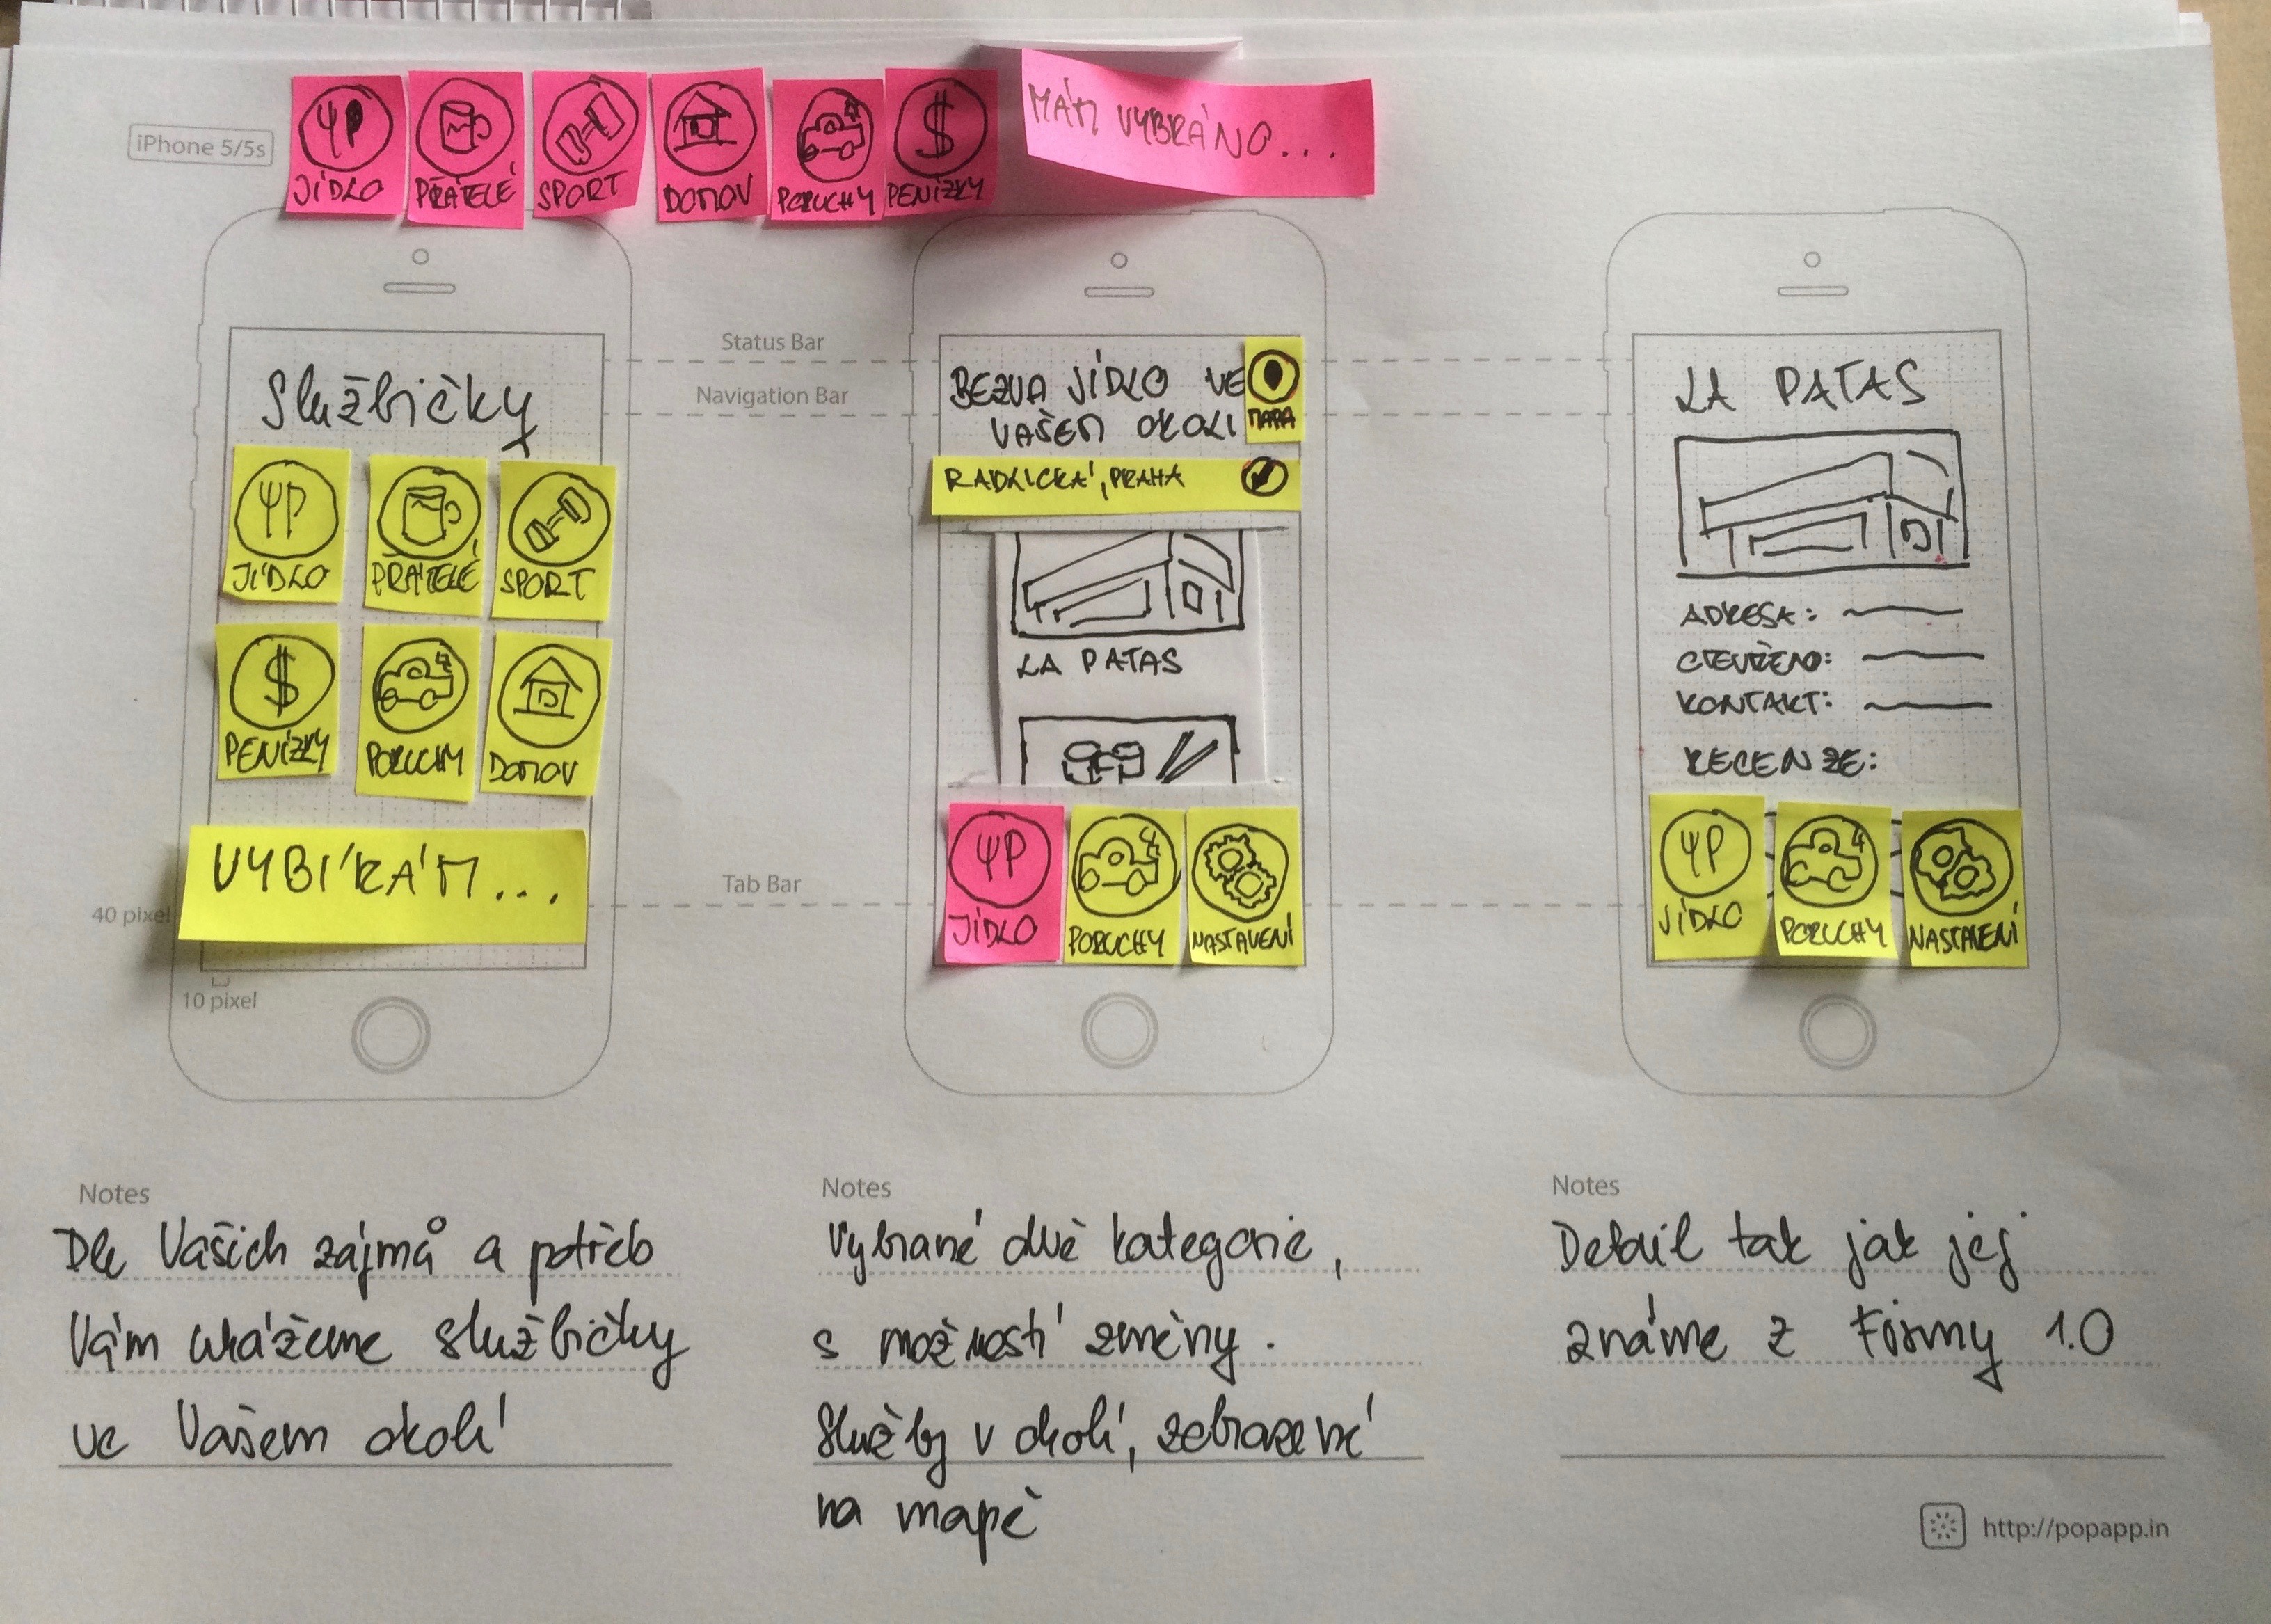 iPhone 5/5s
JÍDLO
PŘÁTELÉ
SPORT
DOMOV
PORUCHY
PENÍZKY
MÁM VYBRÁNO...
Status Bar
Navigation Bar
Tab Bar
40 pixel
10 pixel
Službičky
JÍDLO
PŘÁTELÉ
SPORT
PENÍZKY
PORUCHY
DOMOV
VYBÍRÁM...
BEZVA JÍDLO VE
VAŠEM OKOLI
MAPA
RADLICKÁ, PRAHA
LA PATAS
JÍDLO
PORUCHY
NASTAVENÍ
LA PATAS
ADRESA:
OTEVŘENO:
KONTAKT:
RECENZE:
JÍDLO
PORUCHY
NASTAVENÍ
Notes
Dle Vašich zájmů a potřeb
Vám ukážeme službičky
ve Vašem okolí
Notes
Vybrané dvě kategorie,
s možností změny.
Služby v okolí, zobrazené
na mapě
Notes
Detail tak jak jej
známe z Firmy 1.0
http://popapp.in